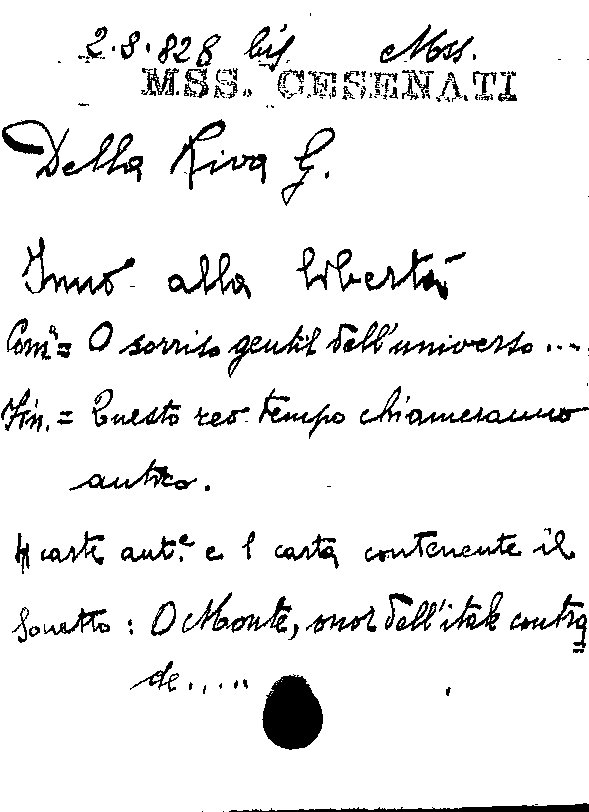 2.8.828 bis Mss.
MSS. CESENATI
Della Riva G.
Inno alla libertà
Com.ª = O sorriso gentil dell'universo....
Fin. = Questo reo tempo chiameranno
antico.
4 carte aut.e e 1 carta contenente il
Sonetto: O Monte, onor dell'itale contra
de.....